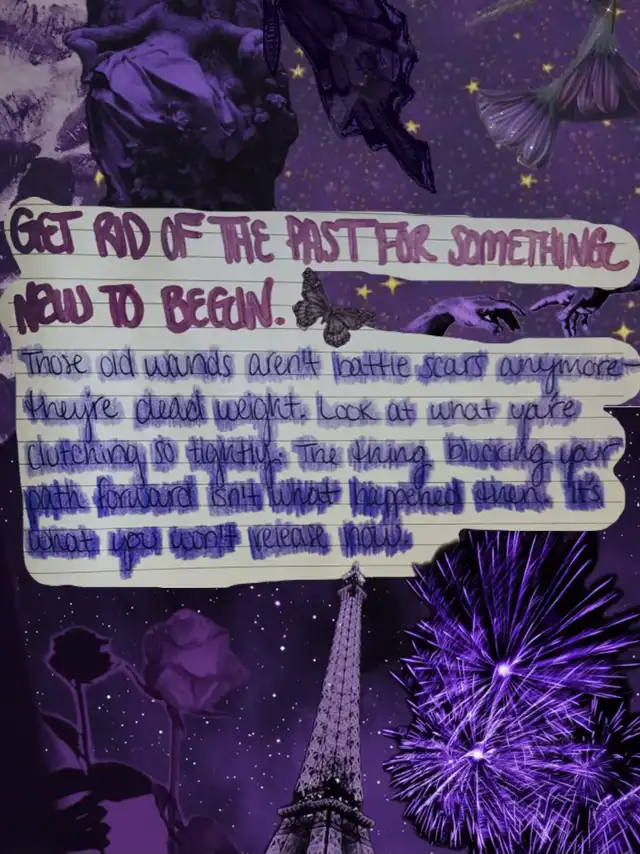 GET RID OF THE PAST FOR SOMETHING
NEW TO BEGIN.
Those old wounds aren't battle scars anymore—
they're dead weight. Look at what you're
clutching so tightly. The thing blocking your
path forward isn't what happened then. It's
what you won't release now.